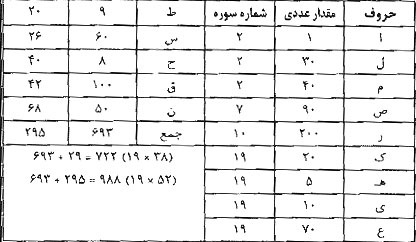 حروف مقدار عددی شماره سوره ط ۹ ۲۰
ا ۱ ۲ س ۶۰ ۲۶
ل ۳۰ ۲ ح ۸ ۴۰
م ۴۰ ۲ ق ۱۰۰ ۴۲
ص ۹۰ ۷ ن ۵۰ ۶۸
ر ۲۰۰ ۱۰ جمع ۶۹۳ ۲۹۵
ک ۲۰ ۱۹ ۶۹۳ + ۲۹ = ۷۲۲ (۱۹ × ۳۸)
هـ ۵ ۱۹ ۶۹۳ + ۲۹۵ = ۹۸۸ (۱۹ × ۵۲)
ی ۱۰ ۱۹
ع ۷۰ ۱۹